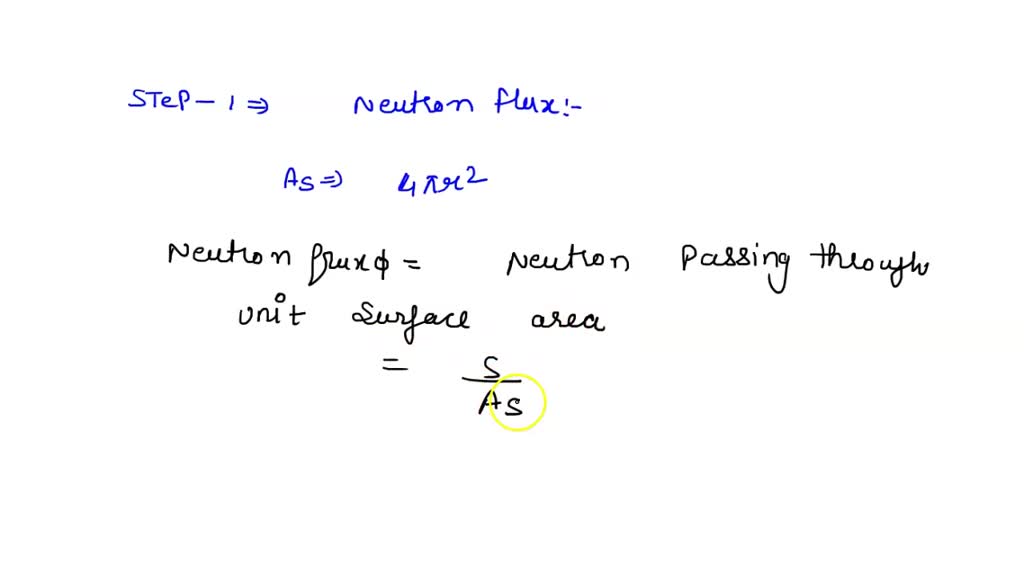 STeP-1⇒ Neutron flux:-
As⇒ 4πr²
Neutron fruxϕ = Neutron Passing through
unit Surface area
= S
As